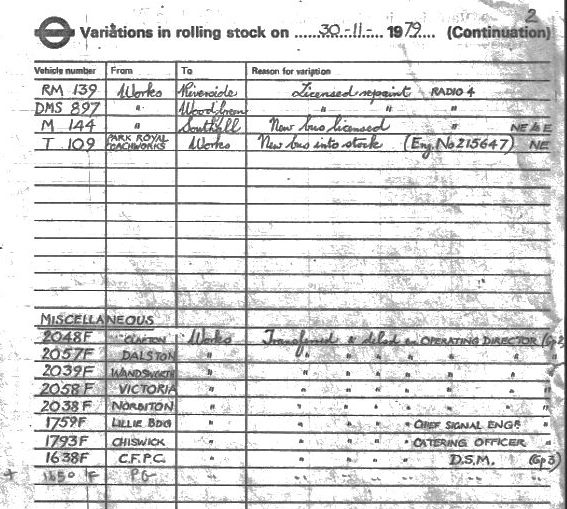 2
Variations in rolling stock on 30-11- 1979 (Continuation)
Vehicle number From To Reason for variation
RM 139 Works Riverside Licensed repaint RADIO 4
DMS 897 " Wood Green " " "
M 144 " Southall New bus licensed " NE to E
T 109 PARK ROYAL COACHWORKS Works New bus into stock (Eng. No 215647) NE
MISCELLANEOUS
2048F CLAPTON Works Transferred & delsd en OPERATING DIRECTOR (Gp2
2057F DALSTON " " " " " " " "
2039F WANDSWORTH " " " " " " " "
2058F VICTORIA " " " " " " " "
2038F NORBITON " " " " " " " "
1759F LILLIE BDG " " " " " CHIEF SIGNAL ENGR "
1793F CHISWICK " " " " " CATERING OFFICER "
1638F C.F.P.C. " " " " " D.S.M. (Gp3)
+ 1650 F PG " " " " " " "